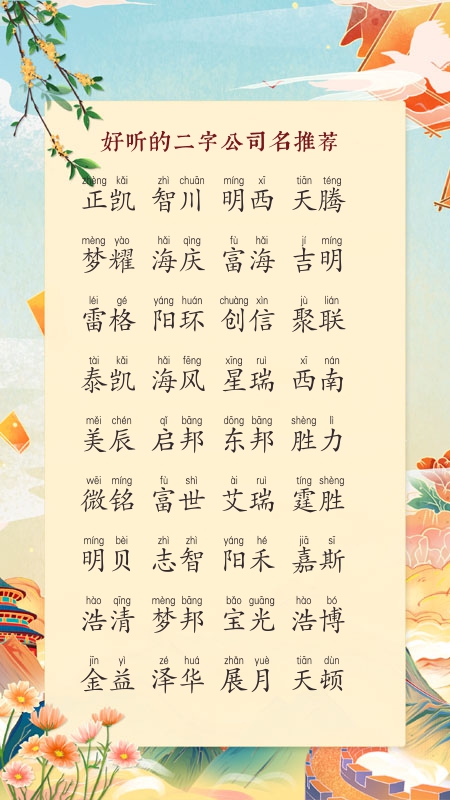 好听的二字公司名推荐
zhèng kǎi zhì chuān míng xī tiān téng
正凯 智川 明西 天腾
mèng yào hǎi qìng fù hǎi jí míng
梦耀 海庆 富海 吉明
léi gé yáng huán chuàng xìn jù lián
雷格 阳环 创信 聚联
tài kǎi hǎi fēng xīng ruì xī nán
泰凯 海风 星瑞 西南
měi chén qǐ bāng dōng bāng shèng lì
美辰 启邦 东邦 胜力
wēi míng fù shì ài ruì tíng shèng
微铭 富世 艾瑞 霆胜
míng bèi zhì zhì yáng hé jiā sī
明贝 志智 阳禾 嘉斯
hào qīng mèng bāng bǎo guāng hào bó
浩清 梦邦 宝光 浩博
jīn yì zé huá zhǎn yuè tiān dùn
金益 泽华 展月 天顿